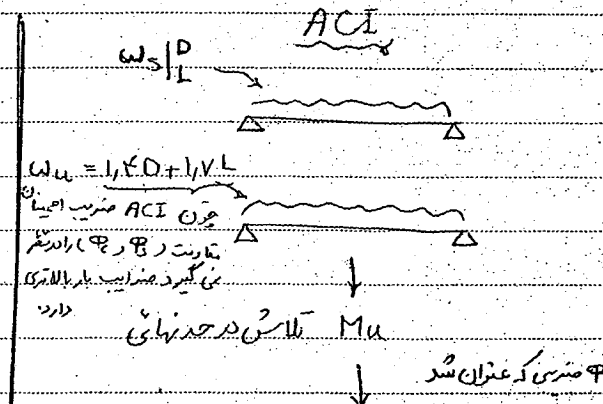 ACI
ws | D L
wu = ۱,۴D + ۱,۷L
چون ACI ضریب اطمینان
مقاومت (φs و φc) را در نظر
نمی گیرد ضرایب بار بالاتری
دارد.
Mu تلاش در حد نهائی
φ ضریبی که عنوان شد